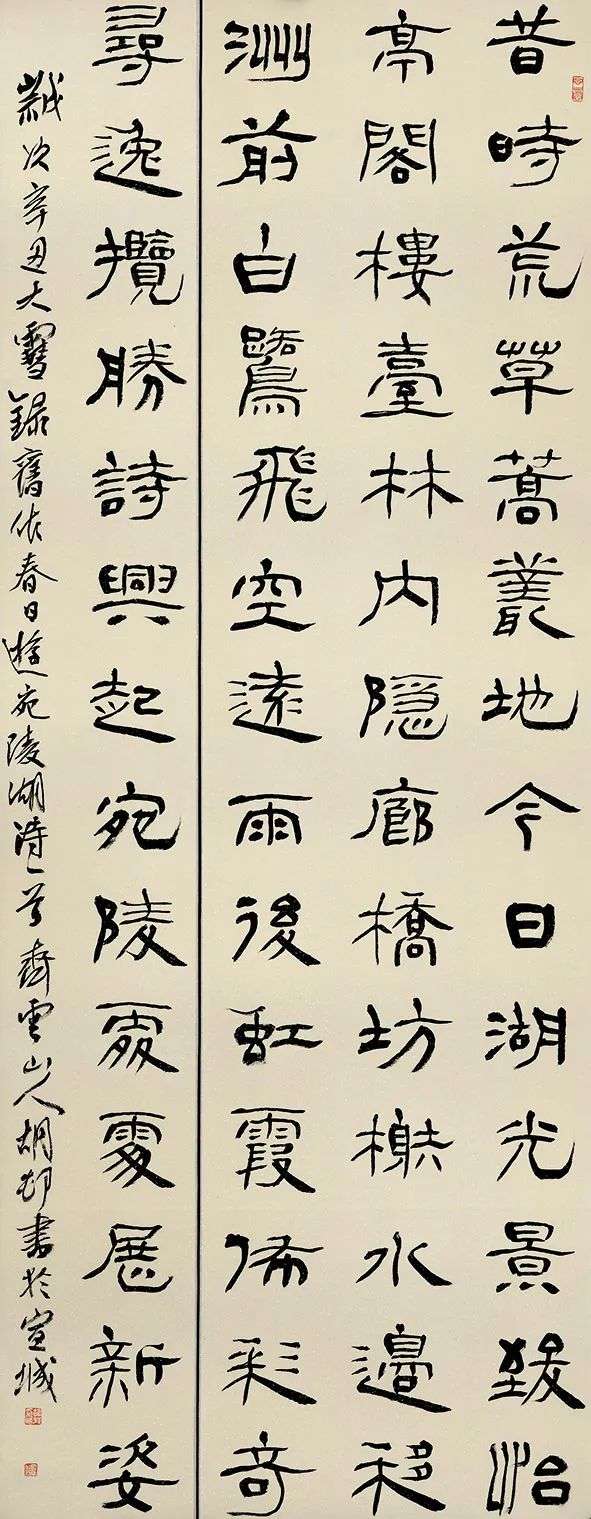 昔時荒草蒿叢地今日湖光景致怡
亭閣樓臺林内隐廊橋坊榭水邊移
洲前白鷺飛空遠雨後虹霞佈彩奇
尋逸攬勝詩興起宛陵處處展新姿
歲次辛丑大雪錄舊作春日遊宛陵湖詩一首齊雲山人胡邨書於宣城